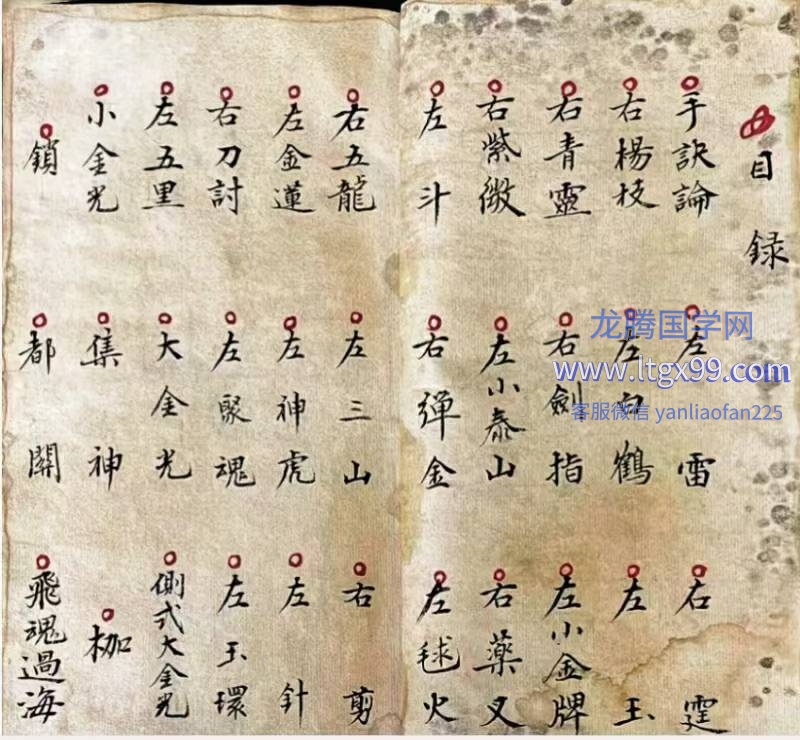 目録
手訣論 左雷 右霆
右楊枝 左白鶴 左玉
右青靈 右劍指 左小金牌
右紫微 左小泰山 右藥叉
左斗 右彈金 左毬火
右五龍 左三山 右剪
左金蓮 左神虎 左針
右刀討 左聚魂 左玉環
左五里 大金光 側式大金光
小金光 集神 枷
鎖 都關 飛魂過海
龙腾国学网
www.ltgx99.com
客服微信 yanliaofan225